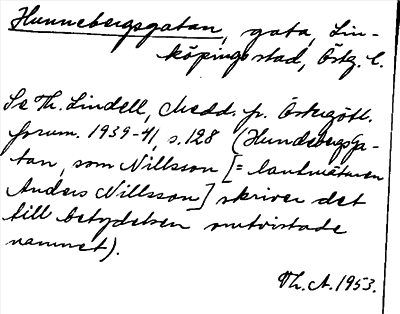 Hunnebergsgatan, gata, Lin-
köpings stad, Östg. l.
Se Th. Lindell, Medd. fr. Östergötl.
fornm. 1939-41, s. 128 (Hundsbergsga-
tan, som Nillsson [= lantmätaren
Anders Nillsson] skriver det
till betydelsen omtvistade
namnet).
Th. A. 1953.